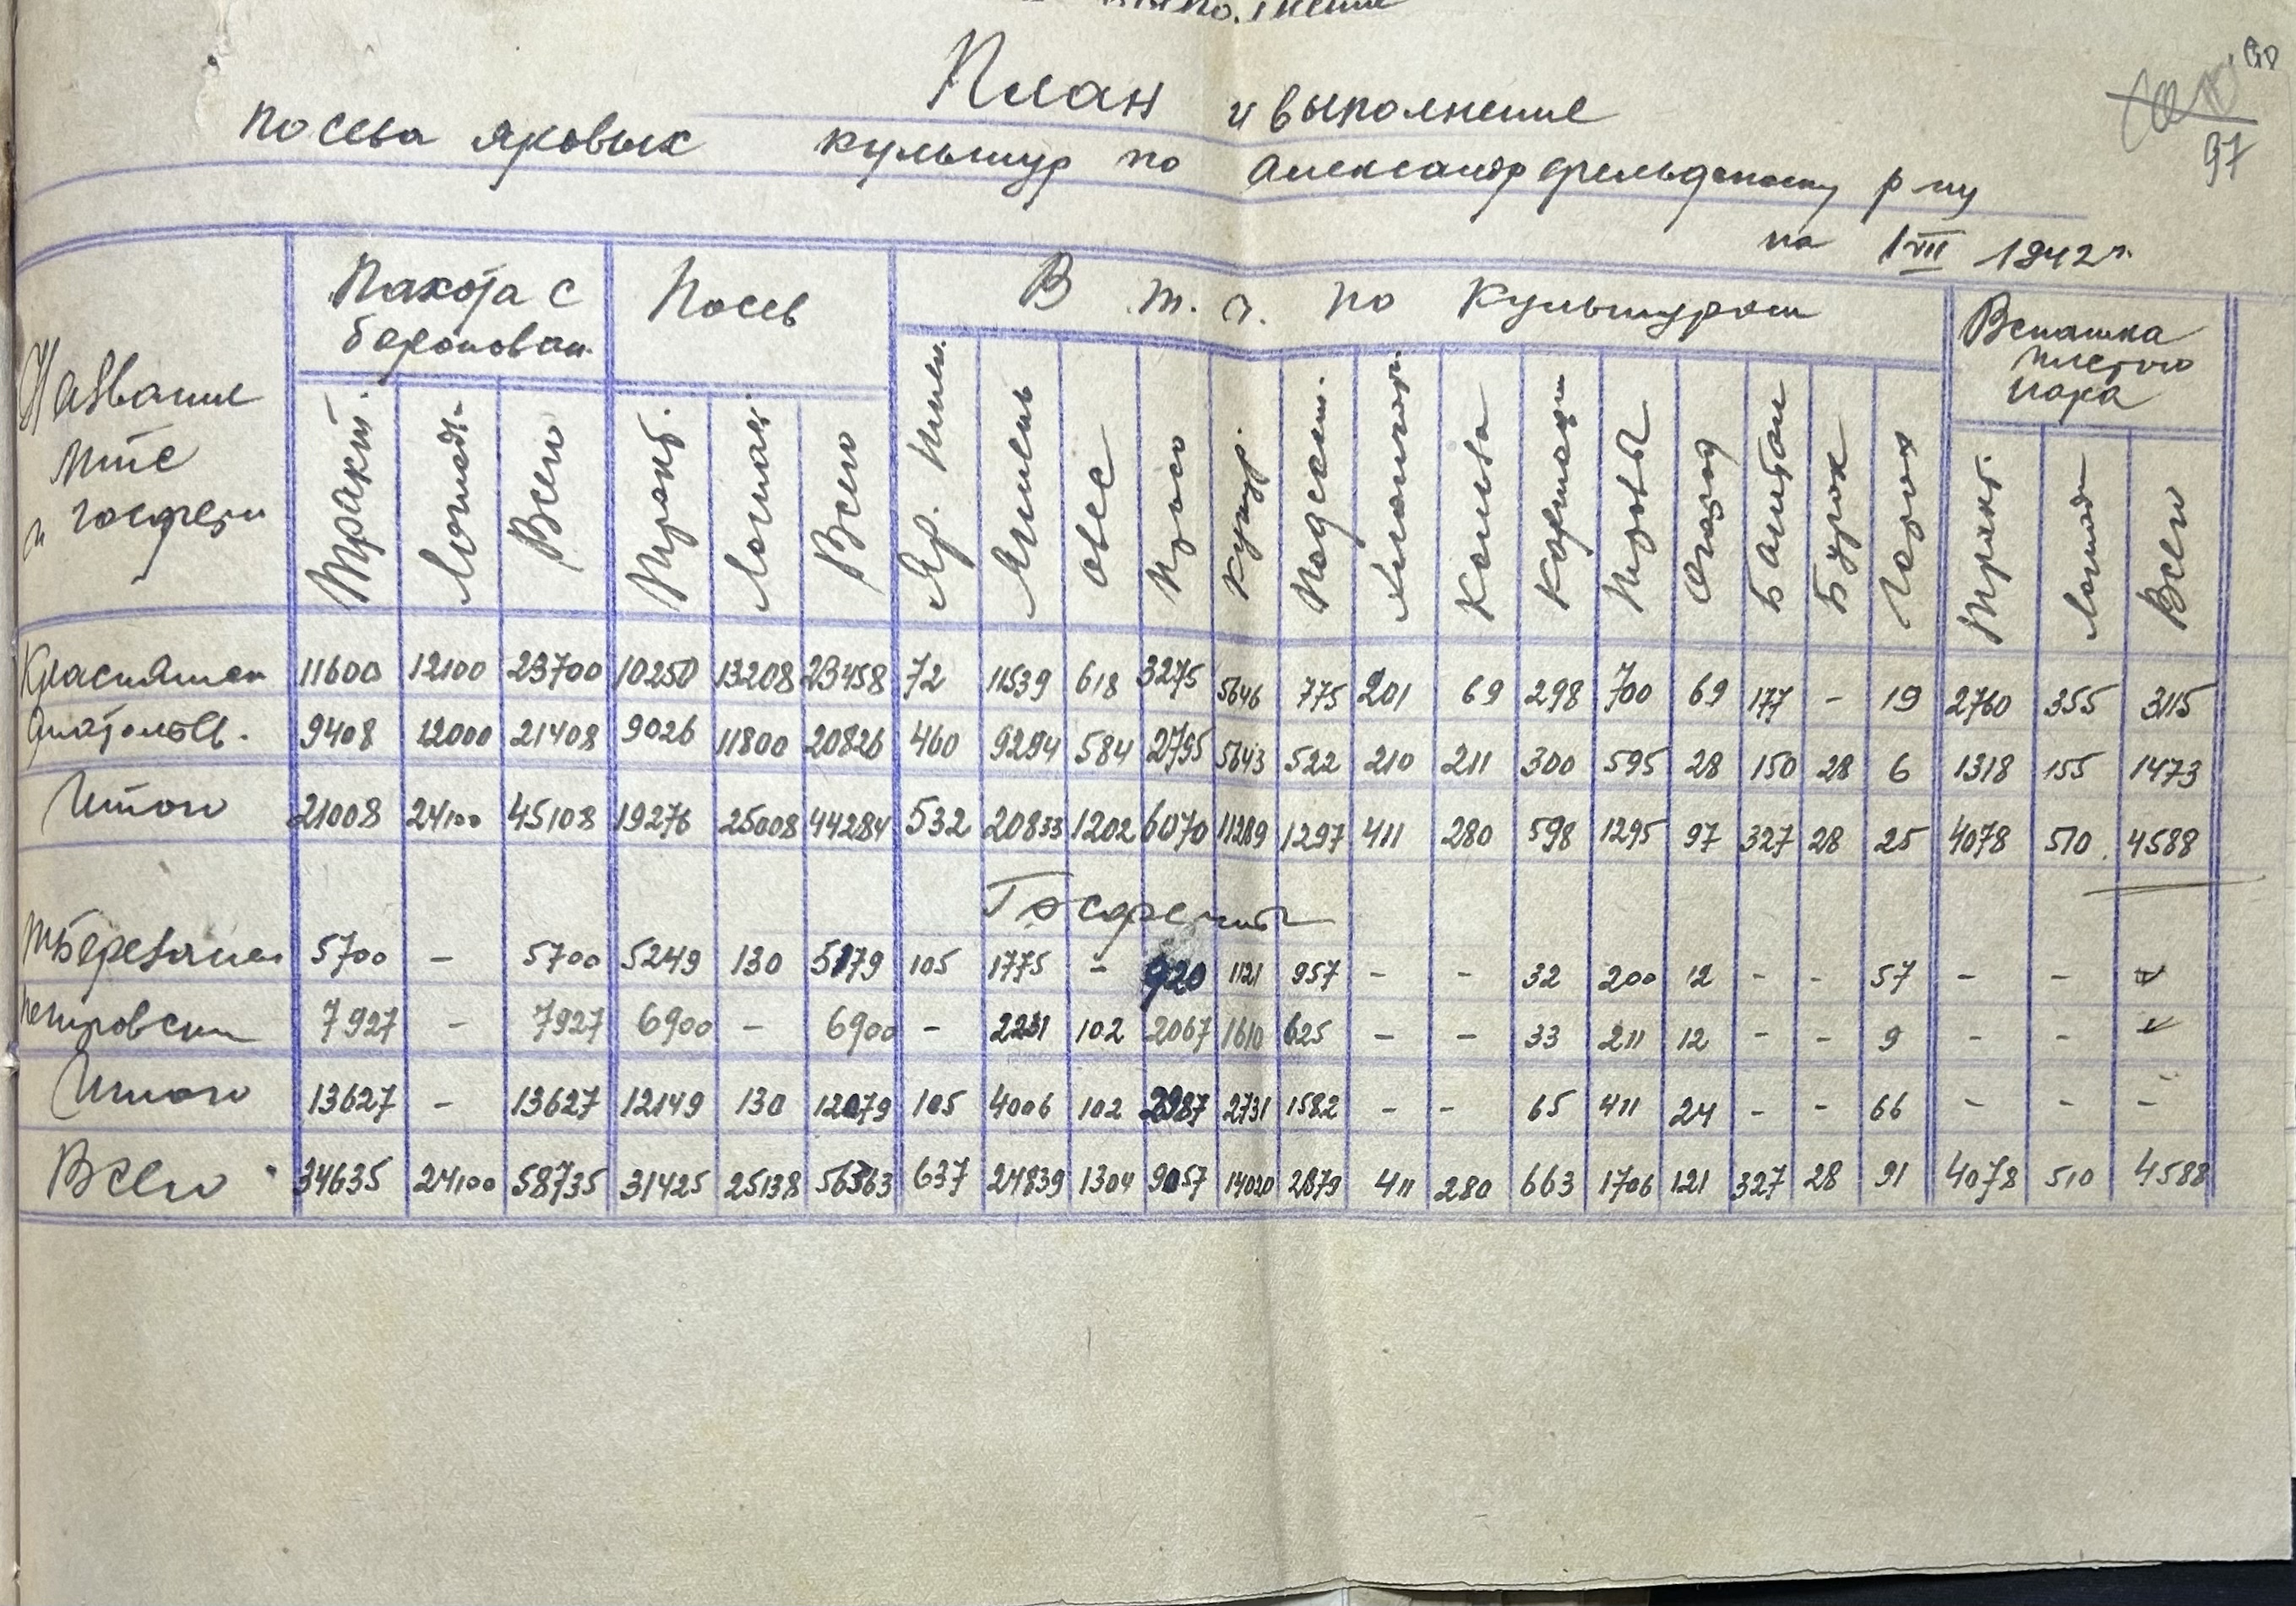 План и выполнение
посева яровых культур по Александрфельдскому р-ну
на 1 VII 1942 г.
97
Название мтс и госферм
Пахота с боронован.
Посев
В т. ч. по культурам
Вспашка чистого пара
Тракт. Лошад. Всего Тракт. Лошад. Всего Яр. пшен. Ячмень Овес Просо Кукур. Подсолн. Картоф. Травы Огород Баштан Бурак Горох Тракт. Лошад. Всего
11600 12100 23700 10250 13208 23458 72 11539 618 3275 5646 775 201 69 298 700 69 177 - 19 2760 355 3115
Анатольев. 9408 12000 21408 9026 11800 20826 460 9294 584 2795 5643 522 210 211 300 595 28 150 28 6 1318 155 1473
Итого 21008 24100 45108 19276 25008 44284 532 20833 1202 6070 11289 1297 411 280 598 1295 97 327 28 25 4078 510 4588
Госфермы
5700 - 5700 5249 130 5379 105 1775 - 920 1121 957 - - 32 200 12 - - 57 - -
Петровски 7927 - 7927 6900 - 6900 - 2231 102 2067 1610 625 - - 33 211 12 - - 9 - -
Итого 13627 - 13627 12149 130 12279 105 4006 102 2987 2731 1582 - - 65 411 24 - - 66 - - -
Всего 34635 24100 58735 31425 25138 56563 637 24839 1304 9057 14020 2879 411 280 663 1706 121 327 28 91 4078 510 4588